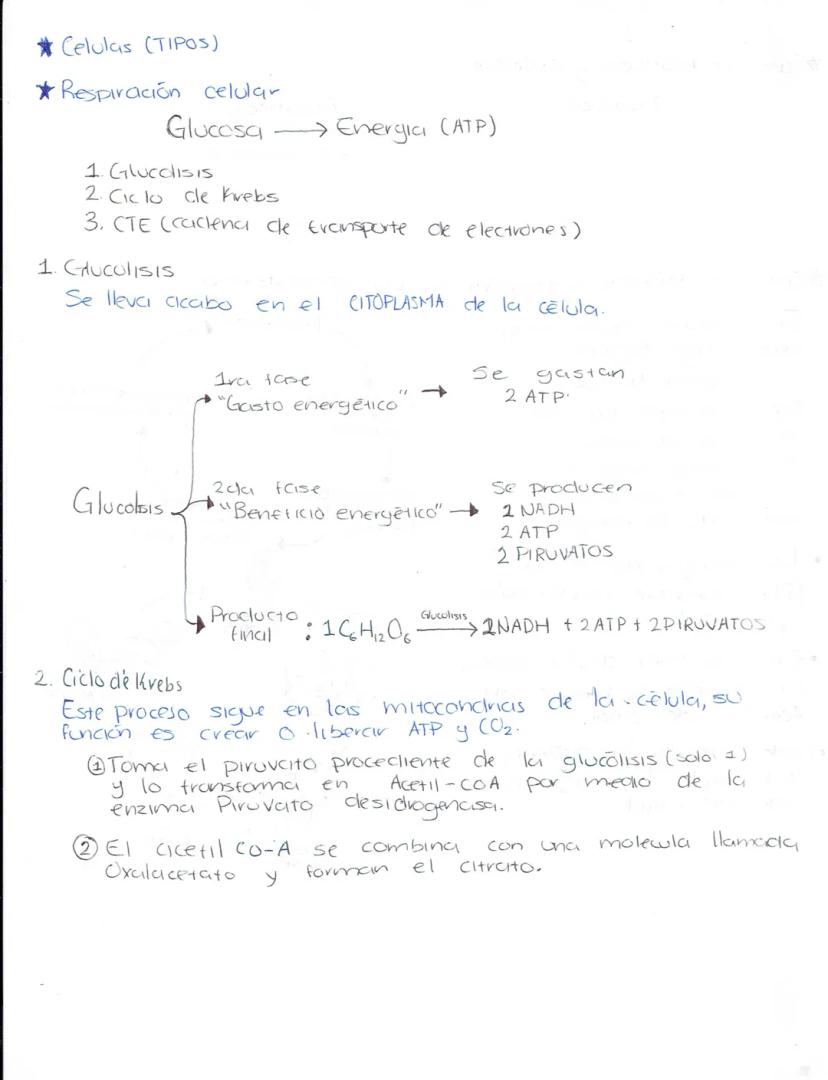 ★ Celulas (TIPOS)
★ Respiración celular
Glucosa → Energia (ATP)
1. Glucolisis
2. Ciclo de Krebs
3. CTE (cadena de transporte de electrones)
1. Glucolisis
Se lleva acabo en el CITOPLASMA de la célula.
1ra fase
"Gasto energético" →
Se gastan
2 ATP.
Glucolisis
2da fase
"Beneficio energético" →
Se producen
2 NADH
2 ATP
2 PIRUVATOS
Producto final : 1C₆H₁₂O₆ Glucolisis → 2NADH + 2ATP + 2PIRUVATOS
2. Ciclo de Krebs
Este proceso sigue en las mitocondrias de la célula, su
función es crear o liberar ATP y CO₂.
① Toma el piruvato procediente de la glucólisis (solo 1)
y lo transforma en Acetil-COA por medio de la
enzima Piruvato desidrogenasa.
② El acetil CO-A se combina con una molecula llamada
Oxalacetato y forman el citrato.